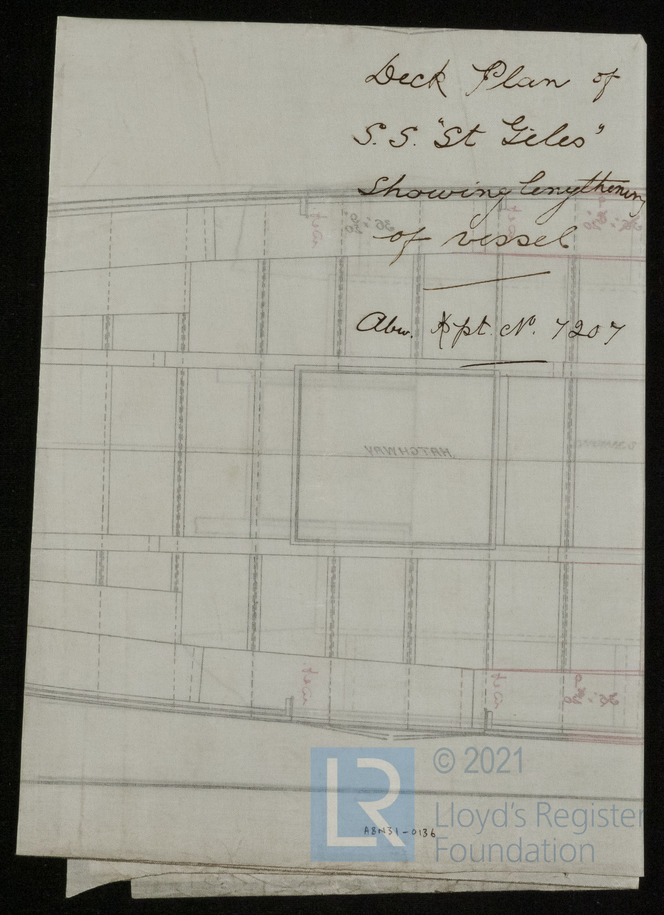 Deck Plan of
S.S. "St Giles"
Showing lengthening
of vessel
Abn. Rpt. No. 7207
HATCHWAY
A8N31-0136
LR
© 2021
Lloyd's Register
Foundation